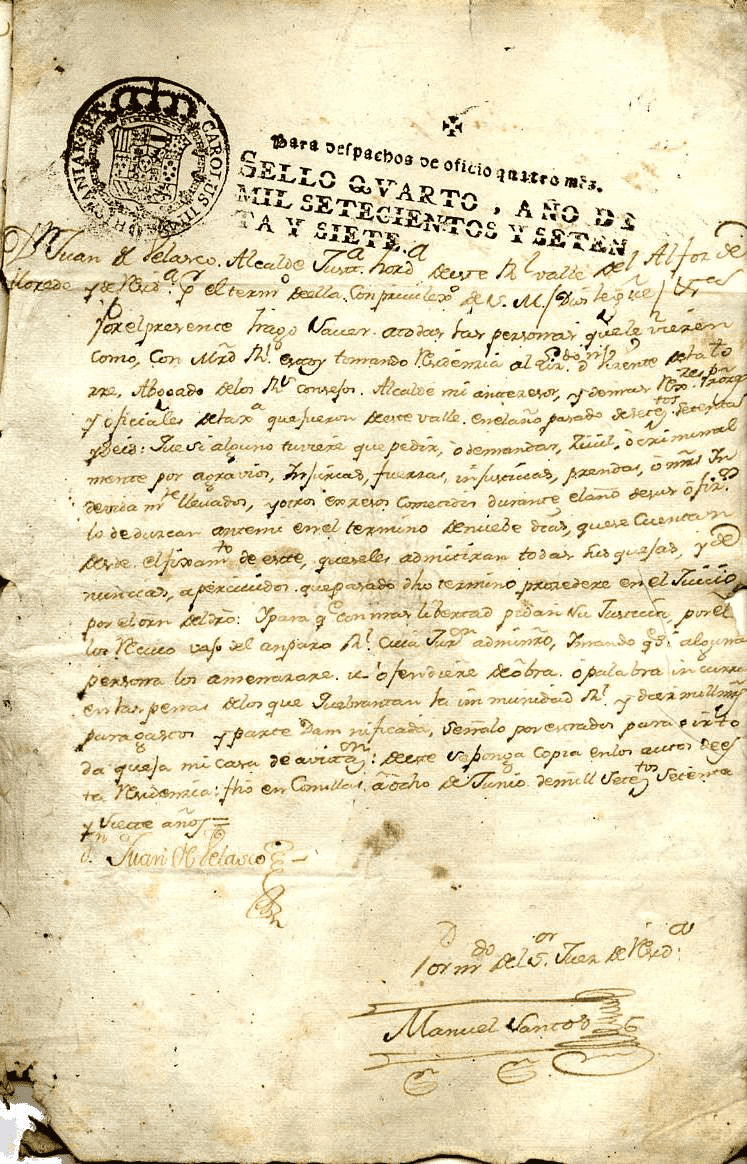 CAROLUS III HISPANIAR REX
Para despachos de oficio quatro mrs.
SELLO QVARTO, AÑO DE
MIL SETECIENTOS Y SETEN
TA Y SIETE.
Dn Juan de Velasco. Alcalde Justa hordª deeste Rl valle del Alfoz de
lloredo y de Residª pr el termo de ella. Con privilexo de S. M. (Dios le gue)
Por el presente hago saver. a todas las personas que le vieren
como, con Mrd Rl estoy tomando Residencia al dn Vizente de la to
rre, Abogado de los Rs consejos. Alcalde mi antezesor, y demas
y oficiales de la que fueron deeste valle. en el año pasado de setetos setenta
y seis: Que si alguno tuviere que pedir, ò demandar, Zivil, ò criminal
mente por agravios, Injurias, fuerzas, injusticias, prendas, ò mrs In
devidamte llevados, y otros exzesos cometidos durante el año de sus ofizos
lo deduzcan antemi en el termino de nuebe dias, que se Cuentan
desde el fixamto de este, que se les admitiran todas sus quejas, y de
nuncias, apercividos que pasado dho termino prozedere en el Juicio
por el orn del dro: Ypara qe con mas libertad pidan su Justicia, por el
los Recivo vajo del amparo Rl cuia Jurdn admintro, Imando qe si alguna
persona los amenazare ù ofendiere de òbra ò palabra incurra
en las penas de los que quebrantan la inmunidad Rl y diez mill mrs
para gastos y parte Damnificada, señalo por estrados para oir to
da queja mi casa de avitazon: deeste se ponga Copia en los autos dees
ta Residencia: fho en Comillas, a ocho de Junio de mill setetos setenta
y siette años=
Dn Juan de Velasco
Por mdo del Sor Juez de Residª
Manuel Santos